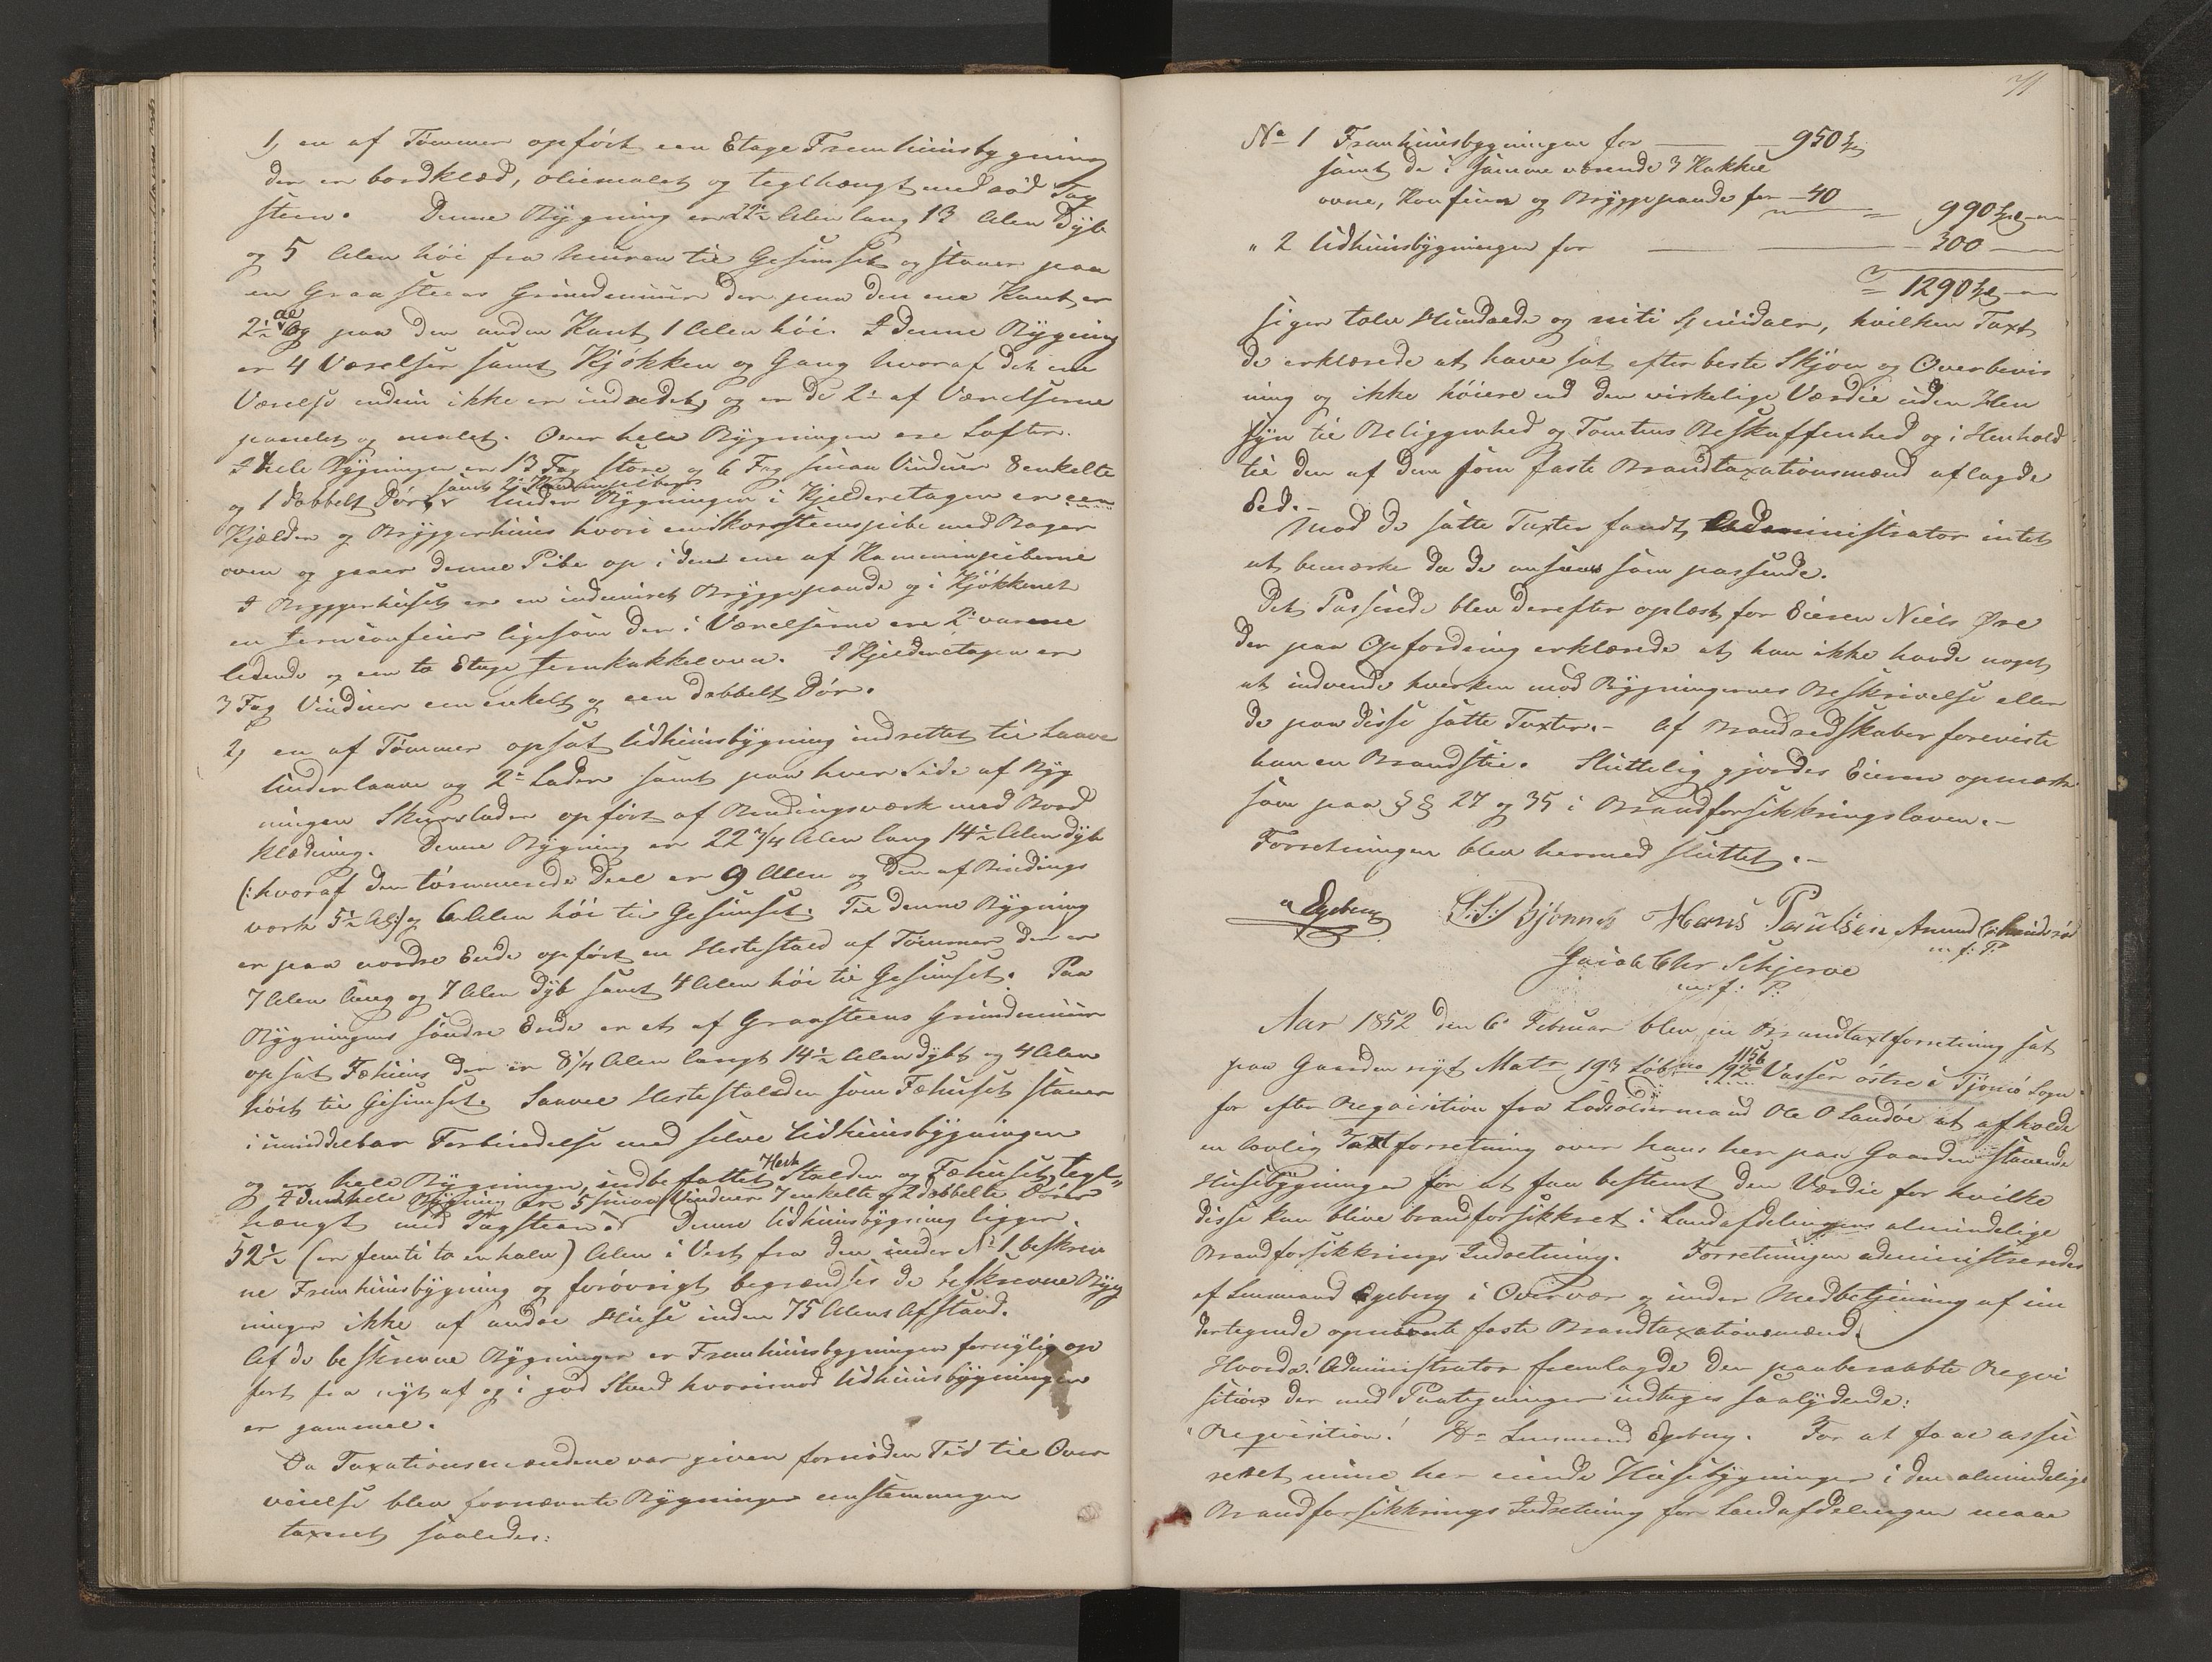 1, en af Tømmer opført een Etage Fremhuusbygning
der er bordklæd, oliemalet og teglhængt med rød Tag
steen. Denne Bygning er 22½ Alen lang 13 Alen dyb
og 5 Alen høi fra Muren til Gesimset og staaer paa
en Graasteens Grundmuur der paa den ene Kant er
2½ al og paa den anden Kant 1 Alen høi. I denne Bygning
er 4 Værelser samt Kjøkken og Gang hvoraf det ene
Værelse endnu ikke er indredet, og er de 2de af Værelserne
panelet og malet. Over hele Bygningen ere Lofter.
I hele Bygningen er 13 Fag store og 6 Fag smaa Vinduer 8 enkelte
og 1 dobbelt Dør samt 2de
Under Bygningen i Kjelderetagen er een
Kjælder og Bryggerhuus hvori en Skorsteenspibe med Bager
oven og gaaer denne Pibe op i den ene af Kaminpiberne
I Bryggerhuset er en indmuret Bryggepande og i Kjøkkenet
en Jernconfuur ligesom der i Værelserne ere 2de varme
ledende og een to Etage Jernkakkelovn. I Kjelderetagen er
3 Fag Vinduer een enkelt og een dobbelt Dør.
2, en af Tømmer opsat Udhuusbygning indrettet til Laave
Underlaave og 2de Lader samt paa hver Side af Byg
ningen Skurvlader opført af Bindingsværk med Bord
klædning. Denne Bygning er 22 3/4 Alen lang 14½ Alen dyb
(: hvoraf den tømmerede Deel er 9 Alen og den af Bindings
værk 5½ Al:) og 6 Alen høi til Gesimset. Til denne Bygning
er paa nordre Ende opført en Hestestald af Tømmer der er
7 Alen lang og 7 Alen dyb samt 4 Alen høi til Gesimset. Paa
Bygningens søndre Ende er et af Graasteens Grundmuur
opsat Fæhuus der er 8¼ Alen langt 14½ Alen dybt og 4 Alen
høit til Gesimset. Saavel Hestestalden som Fæhuset staaer
i umiddelbar Forbindelse med selve Udhuusbygningen
og er hele Bygningen indbefattet Heste Stalden og Fæhuset, tegl-
I den hele Bygning ere 5 smaa Vinduer 7 enkelte og 2 dobbelte Dører
hængt med Tagsteen. Denne Udhuusbygning ligger
52½ (er femti to en halv) Alen i Vest fra den under No 1 beskrev
ne Fremhuusbygning og forøvrigt begrændses de beskrevne Byg
ninger ikke af andre Huse inden 75 Alens Afstand.
Af de beskrevne Bygninger er Fremhuusbygningen fornylig op
ført fra nyt af og i god Stand hvorimod Udhuusbygningen
er gammel.
Da Taxationsmændene var given fornøden Tid til Over
veielse blev fornævnte Bygninger eenstemmigen
taxeret saaledes:
No 1 Fremhuusbygningen for 950 Spd
samt de i samme værende 3 Kakkel
ovne, Konfuur og Bryggepande for 40 = 990 Spd
" 2 Udhuusbygningen for 300
= 1290 Spd
siger tolv Hundrede og niti Speciedaler, hvilken Taxt
de erklærede at have sat efter beste Skjøn og Overbevis
ning og ikke høiere end den virkelige Værdie uden Hen
syn til Beliggenhed og Tomtens Beskaffenhed og i Henhold
til den af dem som faste Brandtaxationsmænd aflagde
Eed.-
Mod de satte Taxter fandt Administrator intet
at bemærke da de ansaaes som passende.
Det Passerede blev derefter oplæst for Eieren Niels Øre
der paa Opfordring erklærede at han ikke havde noget
at indvende hverken mod Bygningernes Beskrivelse eller
de paa disse satte Taxter.- Af Brandredskaber foreviste
han en Brandstie. Sluttelig gjordes Eieren opmærk
som paa §§ 27 og 35 i Brandforsikkringsloven.-
Forretningen blev hermed sluttet.-
Egeberg S:S: Bjønnes Hans Paulsen Amund
m: f: P:
Jacob Chr Schjerve
m: f: P:
Aar 1852 den 6 Februar blev en Brandtaxtforretning sat
paa Gaarden nyt Matr 193 Løbno 192 115b Vasser østre i Tjømø Sogn
for efter Reqvisition fra Lodsoldermand Ole O Sandøe at afholde
en lovlig Taxtforretning over hans her paa Gaarden staaende
Huusebygninger for at faa bestemt den Værdie for hvilke
disse kan blive brandforsikkret i Landafdelingens almindelige
Brandforsikkrings Indretning. Forretningen administreredes
af Lensmand Egeberg i Overvær og under Medbetjening af un
dertegnede opnævnte faste Brandtaxationsmænd.
Hvorda! Administrator fremlagde den paaberaabte Reqvi
sition der med Paategninger indtages saalydende:
"Reqvisition! Hr Lensmand Egeberg. For at faae assu
reret mine her eiende Huusebygninger i den almindelige
Brandforsikkrings Indretning for Landafdelingen maae